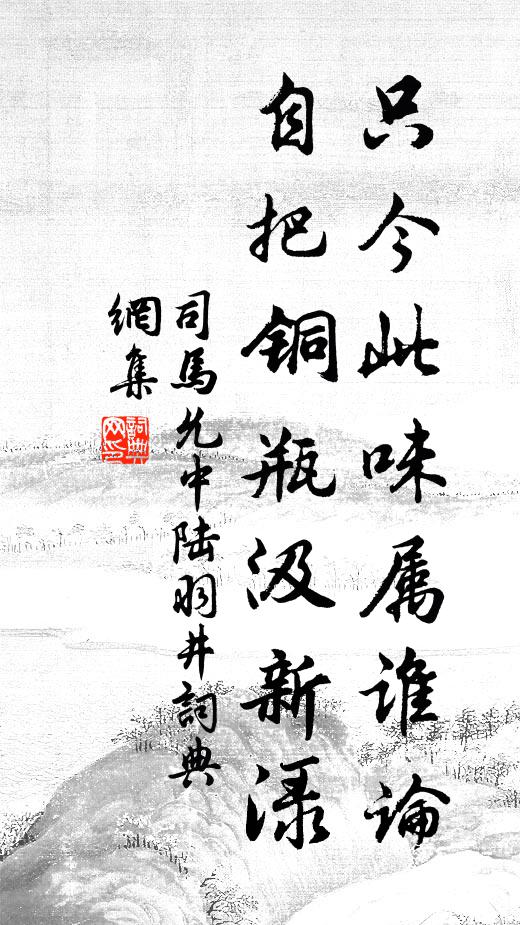 只今此味属谁论
自把铜瓶汲新渌
司馬允中陆羽井詞典
網集
詞典
网集